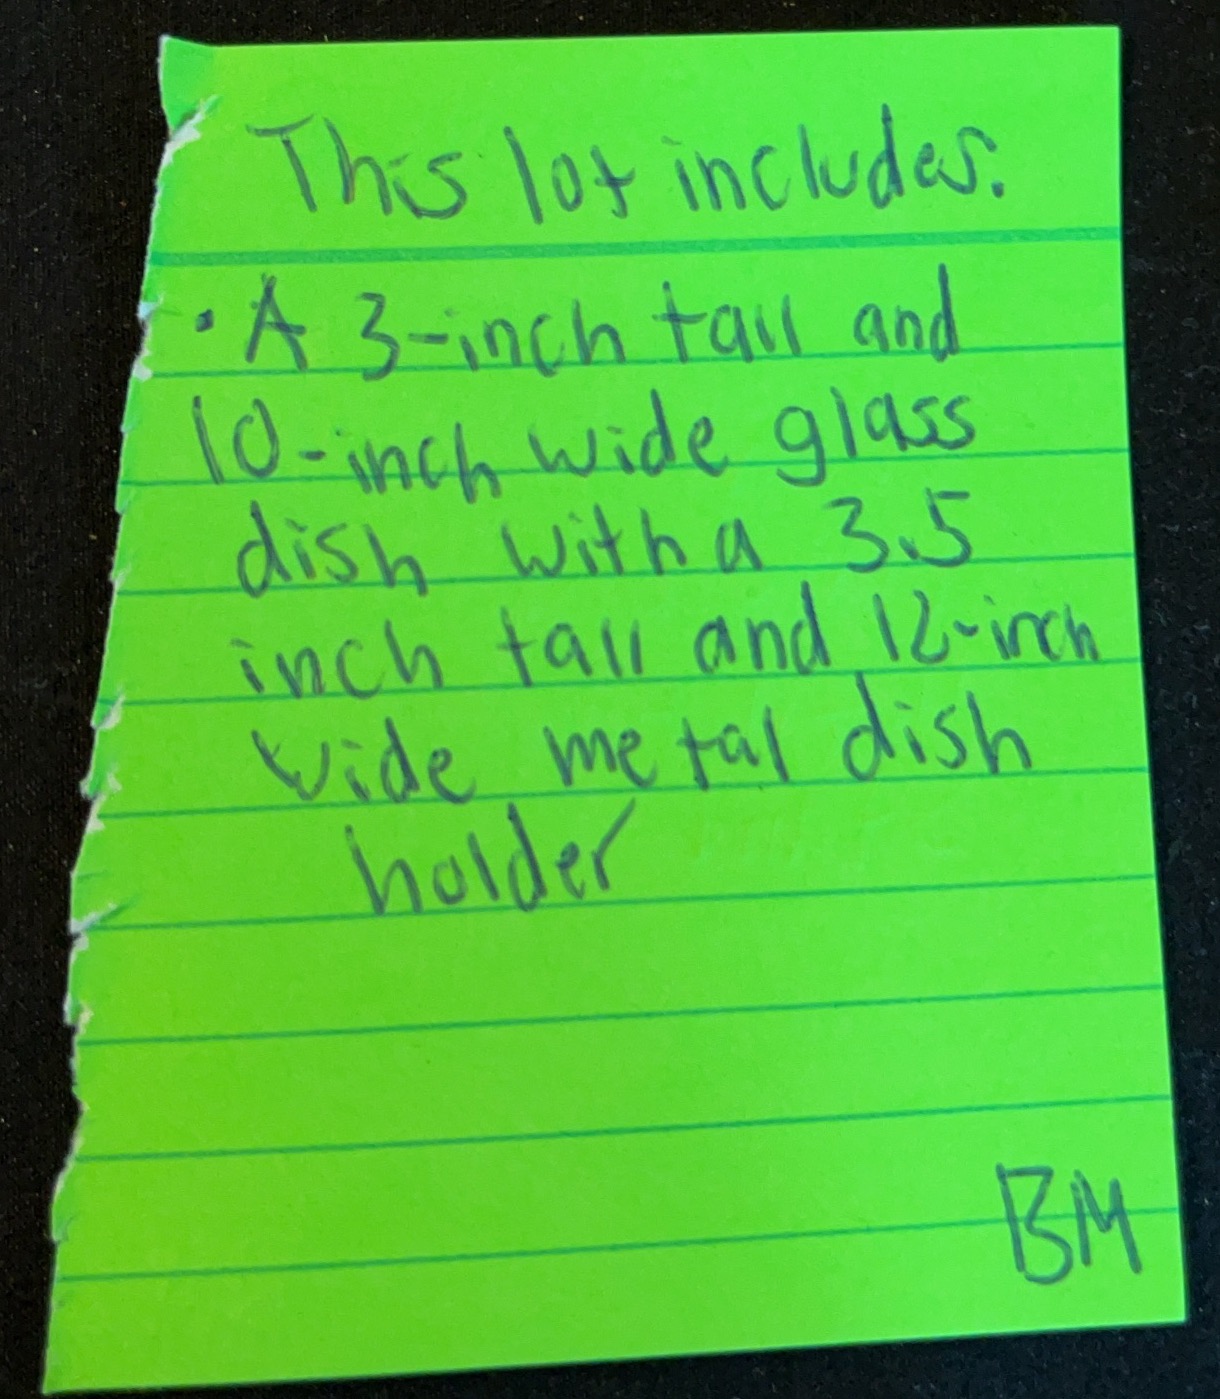 This lot includes:
• A 3-inch tall and
10-inch wide glass
dish with a 3.5
inch tall and 12-inch
wide metal dish
holder
BM